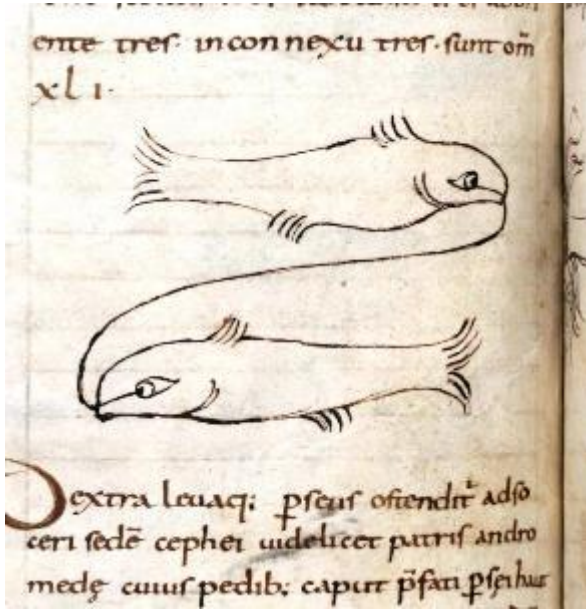 ente tres· in connexu tres· sunt om̄
xl i·
Dextra leuaq; ꝑseus ostendit᷑ adso
ceri sedē cephei uidelicet patris andro
medę cuius pedib; caput p̄fati ꝑsei huic